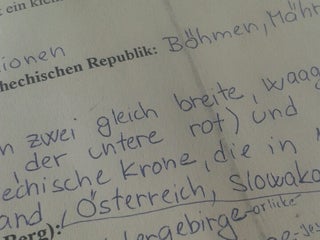 ist ein klei
ionen
hechischen Republik: Böhmen, Mähr
n zwei gleich breite, waag
der untere rot) und
echische Krone, die in
and, Österreich, Slowake
Berg):
engebirge-orlické